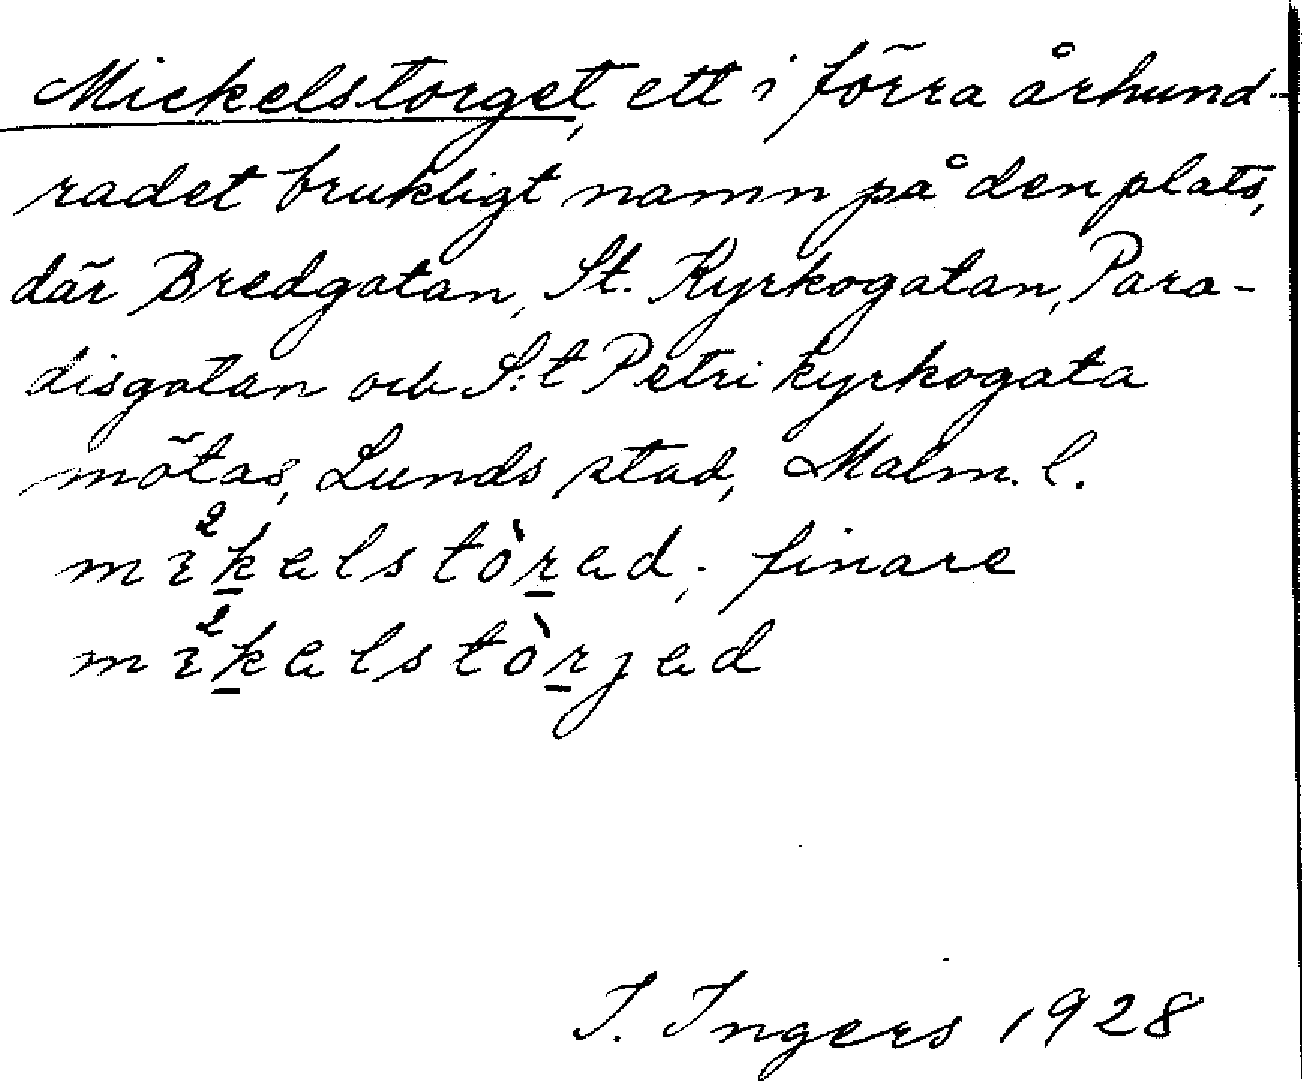 Mickelstorget, ett i förra århund-
radet brukligt namn på den plats,
där Bredgatan, St. Kyrkogatan, Para-
disgatan och S:t Petri kyrkogata
mötas, Lunds stad, Malm. l.
mɪ²k̲əlstòr̲əd; finare
mɪ²k̲əlstòr̲jəd
I. Ingers 1928